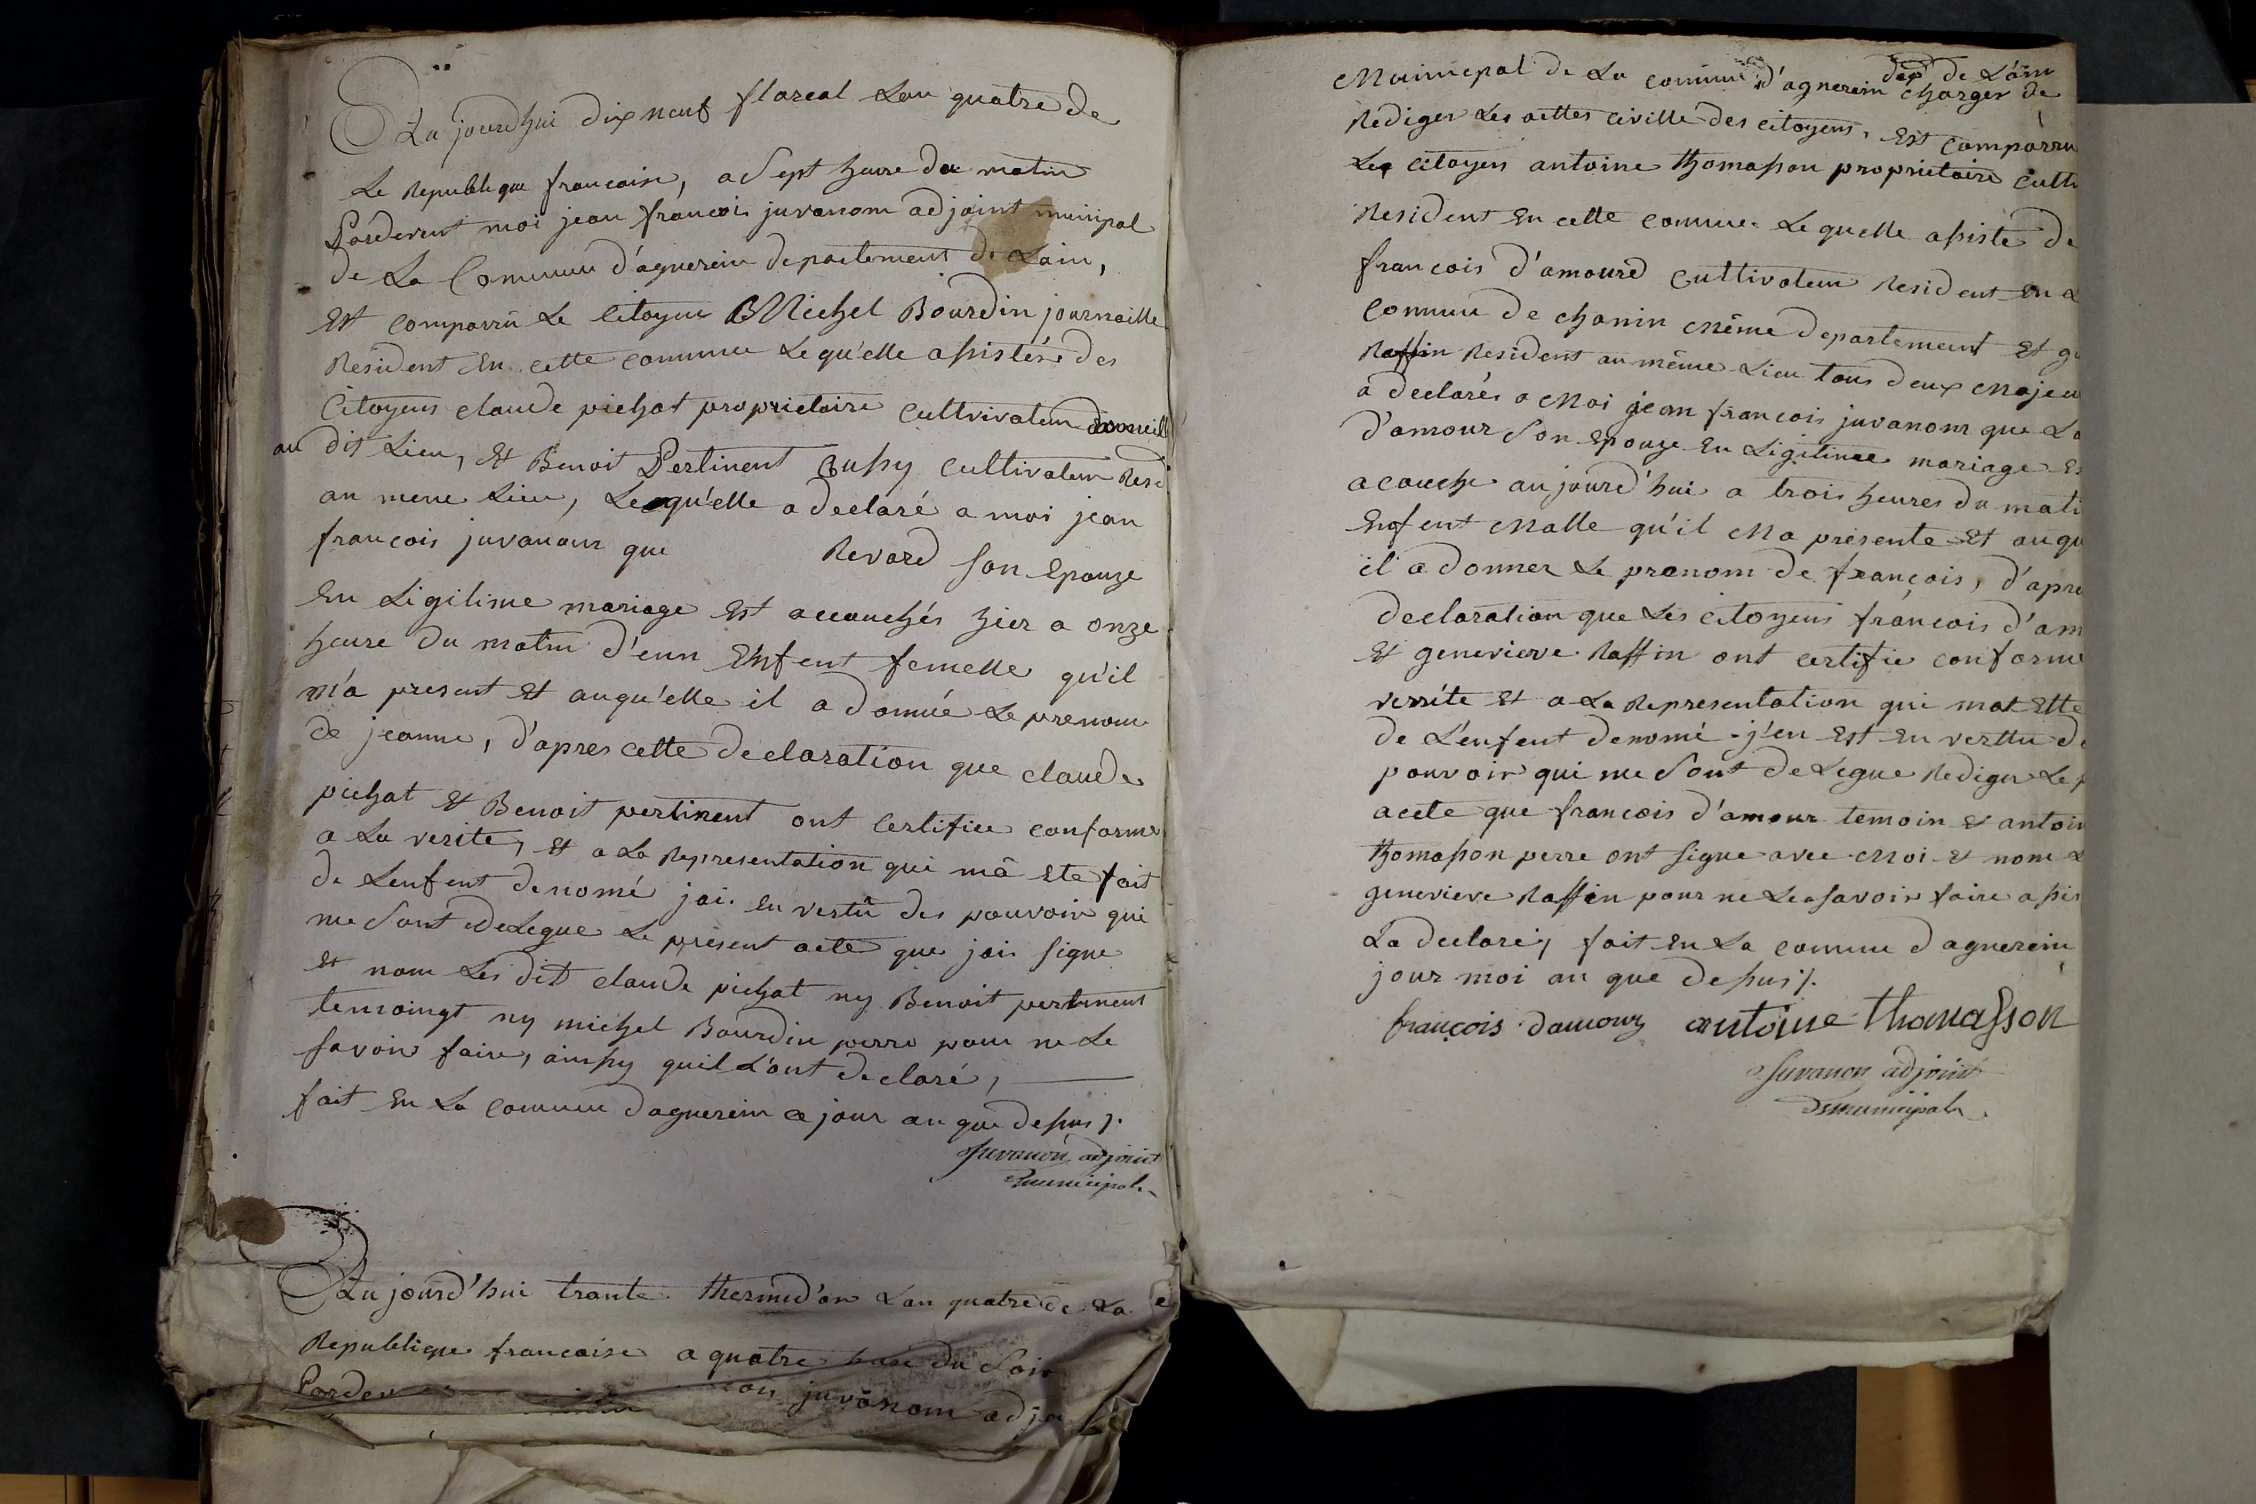 Au jourdhui dix neuf floreal Lan quatre de
Le Republique francaise, a Sept heure du matin
Pardevent moi jean francois juvanom adjoint municipal
de La Commune d'aguerein departement de Lain,
Est comparrû Le Citoyen Michel Bourdin journaille
Resident en cette commune Le qu'elle assistéré des
Citoyens claude pichat proprietaire cultrivateur domicill
au dit Lieu, Et Benoit Pertinent aussy cultivateur Resi
au meme Lieu, Lequ'elle a declaré a moi jean
francois juvanom que Revard son Epouze
En Ligitime mariage Est accouchés hier a onze
heure du matin d'eun Enfent femelle qu'il
m'a present Et auqu'elle il a donnée Le prenom
de jeanne, d'apres cette declaration que claude
pichat Et Benoit pertinent ont certifiée conforme
a La verite, Et a La Representation qui mâ Ete fait
de Lenfent denomé jai en vertû des pouvoir qui
me Sont deLegue Le present acte que jai signe
Et nom Les dit claude pichat ny Benoit pertinent
temoingt ny michel Bourdin perre pour ne Le
savoir faire, ainssy quil L'ont declaré,
fait En La commune daguerein ce jour an que dessus /.
Juvanon adjoint
municipal
Au jourd'hui trante thermid'or L'an quatre de La
Republique francaise a quatre heure du Soir
Pardev juvanom adjoi
Municipal de La commune d'aguerein dep de L'ain charger de
Rediger Les acttes civille des citoyens, Est comparru
Le citoyen antoine thomasson proprietaire cult
Resident En cette commune Le quelle assiste de
francois d'amourd cultivateur Resident En L
commune de chanin même departement Et ge
Raffin Resident au même Lieu tous deux Majeu
a declarés a Moi jean francois juvanom que La
d'amour Son Epouze En Ligitimee mariage Es
acouche aujourd'hui a trois heures du mati
Enfent Malle qu'il Ma présente Et auqu
il a donner Le prenom de françois, d'apre
declaration que Les Citoyens françois d'am
Et genevieve Raffin ont certifie conforme
verrite Et a La Representation qui mat Ette
de L'enfent denomé j'en Est En verttu de
pouvoir qui me Sont de Legue Rediger Le p
acete que francois d'amour temoin Et antoin
thomasson perre ont Signe avec Moi Et nom L
genevieve Raffin pour ne Le savoir faire assis
La declaré, fait En La commune daguerein
jour moi an que dessus /.
françois damour antoine thomasson
Juvanon adjoint
municipal